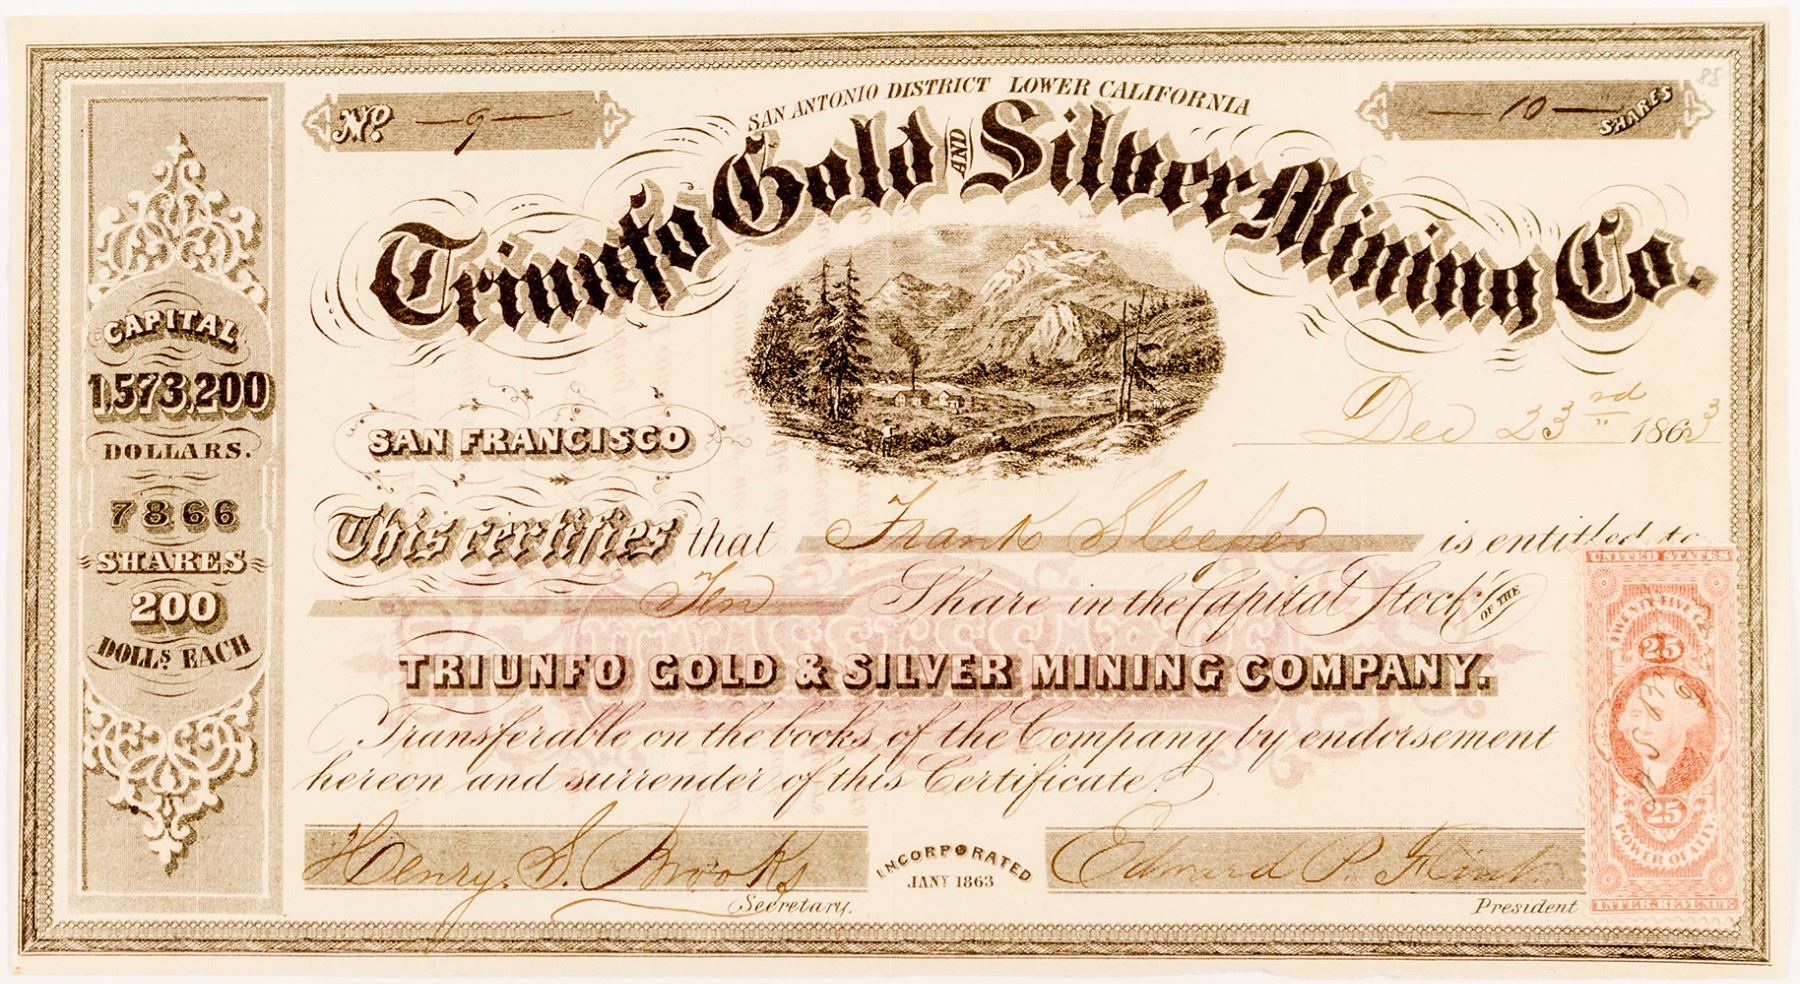 88
No. — 9 —
SAN ANTONIO DISTRICT LOWER CALIFORNIA
— 10 — SHARES
Triunfo Gold AND Silver Mining Co.
CAPITAL
1,573,200
DOLLARS.
7866
SHARES
200
DOLLS EACH
SAN FRANCISCO
Dec 23rd 1863
This certifies that Frank Sleeper is entitled to
Ten Share in the Capital Stock OF THE
TRIUNFO GOLD & SILVER MINING COMPANY.
Transferable on the books of the Company by endorsement
hereon and surrender of this Certificate.
Henry S. Brooks
Secretary.
INCORPORATED
JANY 1863
Edward P. Flint
President
UNITED STATES
TWENTY-FIVE CTS
25
25
POWER OF ATTY.
INTER. REVENUE